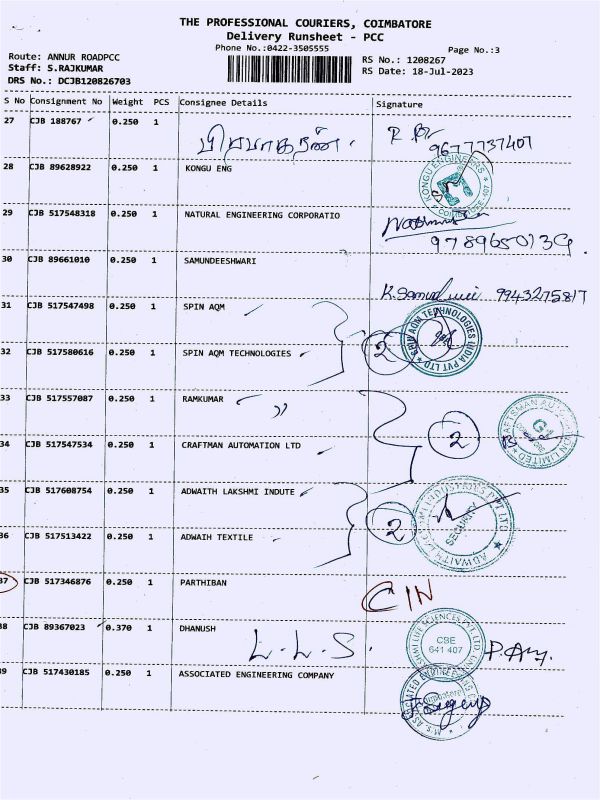 THE PROFESSIONAL COURIERS, COIMBATORE
Delivery Runsheet - PCC
Phone No.:0422-3505555
Page No.:3
Route: ANNUR ROADPCC
Staff: S.RAJKUMAR
DRS No.: DCJB120826703
RS No.: 1208267
RS Date: 18-Jul-2023
S No Consignment No Weight PCS Consignee Details Signature
27 CJB 188767 0.250 1
பிரபாகரன்.
9677737407
28 CJB 89628922 0.250 1 KONGU ENG
KONGU ENGINEERS
29 CJB 517548318 0.250 1 NATURAL ENGINEERING CORPORATIO
9789650139
30 CJB 89661010 0.250 1 SAMUNDEESHWARI
9943275817
31 CJB 517547498 0.250 1 SPIN AQM
2
SPIN AQM TECHNOLOGIES INDIA PVT LTD
32 CJB 517580616 0.250 1 SPIN AQM TECHNOLOGIES
33 CJB 517557087 0.250 1 RAMKUMAR
"
2
CRAFTSMAN AUTOMATION LIMITED
34 CJB 517547534 1 CRAFTMAN AUTOMATION LTD
35 CJB 517608754 0.250 1 ADWAITH LAKSHMI INDUTE
2
SECURITY
36 CJB 517513422 0.250 1 ADWAIH TEXTILE
37 CJB 517346876 0.250 1 PARTHIBAN
CIN
38 CJB 89367023 0.370 1 DHANUSH
L.L.S.
CBE
641 407
39 CJB 517430185 0.250 1 ASSOCIATED ENGINEERING COMPANY